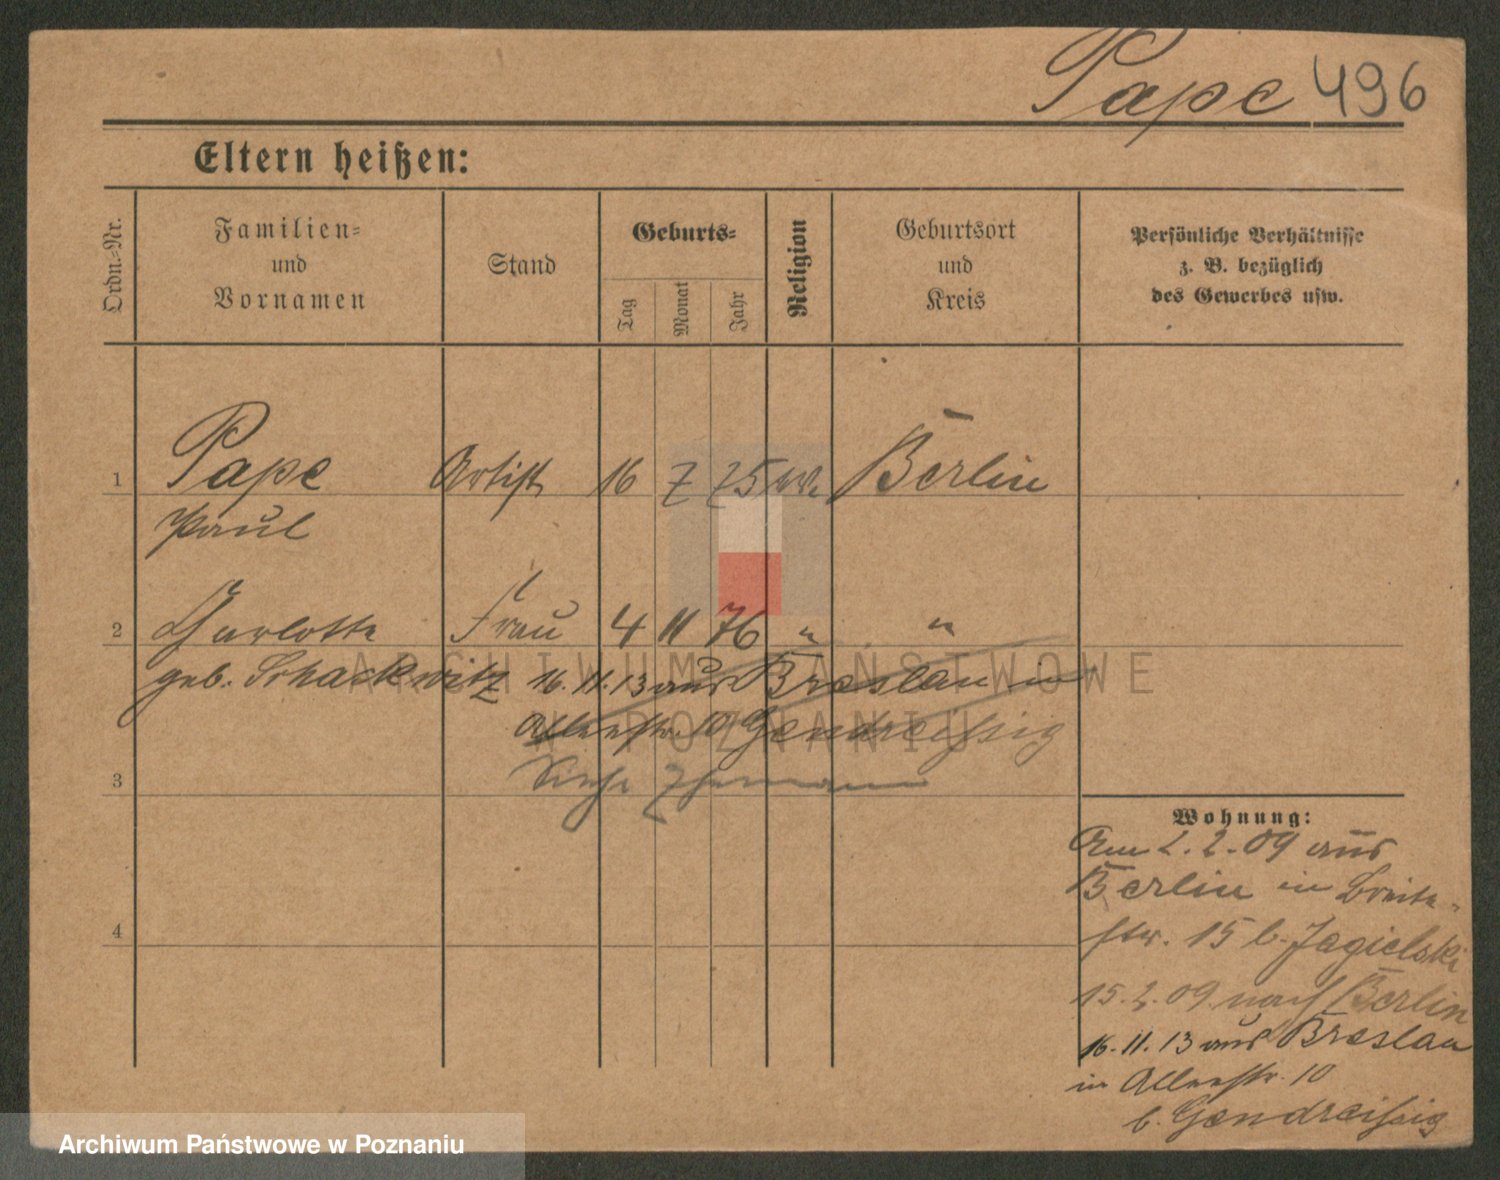 Pape 496
Eltern heißen:
Ordn.-Nr.
Familien-
und
Vornamen
Stand
Geburts-
Tag
Monat
Jahr
Religion
Geburtsort
und
Kreis
Persönliche Verhältnisse
z. B. bezüglich
des Gewerbes usw.
1 Pape Artist 16 7 75 Berlin
Paul
2 Charlotte Frau 4 11 76 " "
geb. Schackwitz 16. 11. 13 aus Breslau in
Allerstr. 10 Gendreißig
3 Siehe
4
Wohnung:
Am 2. 2. 09 aus
Berlin in Breite-
str. 15 b. Jagielski
15. 2. 09. nach Berlin
16. 11. 13 aus Breslau
in Allerstr. 10
b. Gendreißig
ARCHIWUM PAŃSTWOWE
W POZNANIU
Archiwum Państwowe w Poznaniu